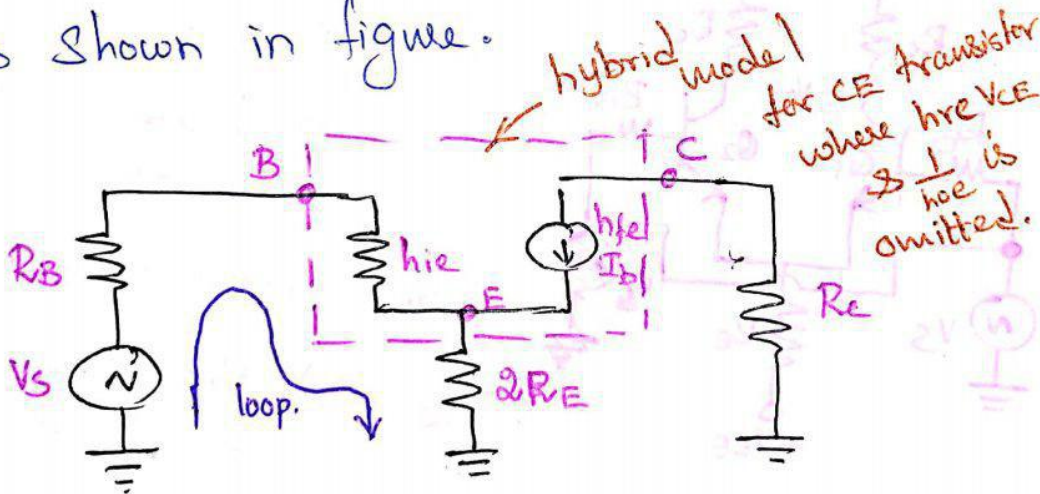 shown in figure.
hybrid model
for CE transistor
where hre VCE
& 1/hoe is
omitted.
B
C
RB
hie
hfe
Ib
E
Rc
VS
loop.
2RE